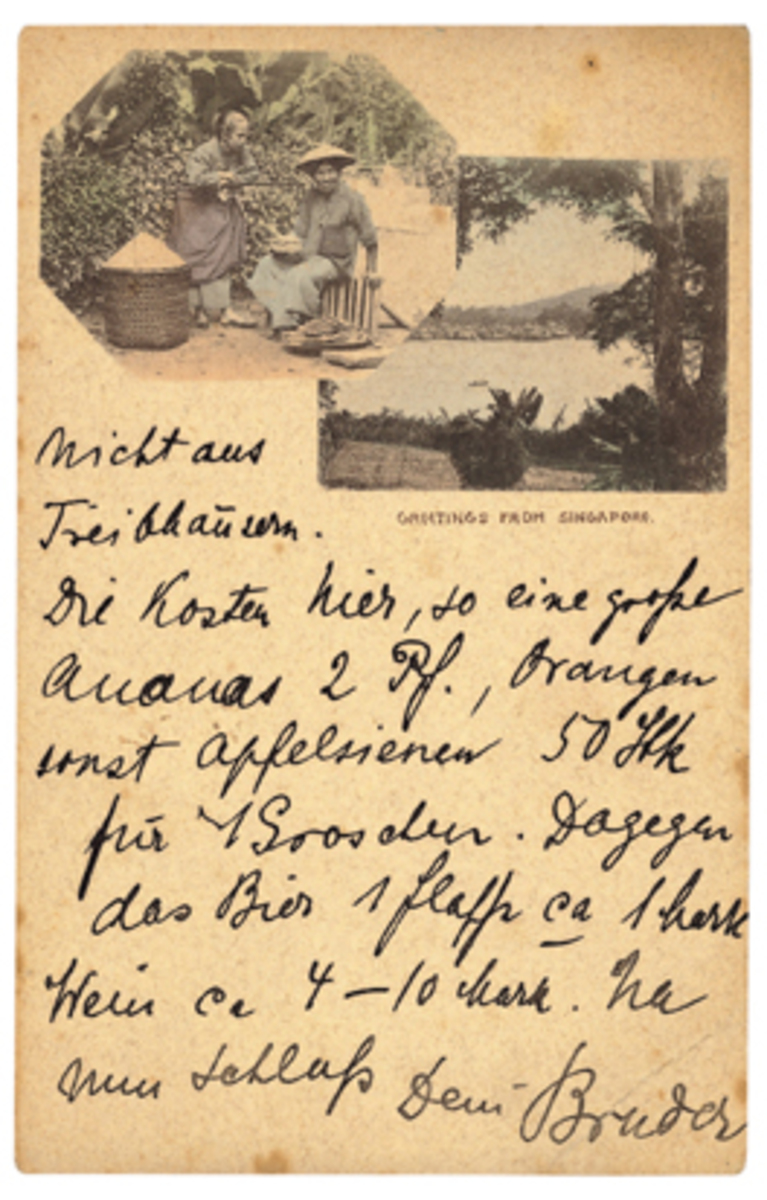 GREETINGS FROM SINGAPORE.
Nicht aus
Treibhäusern.
Die Kosten hier, so eine große
Ananas 2 Pf., Orangen
sonst Apfelsienen 50 Stk
für 1 Groschen. Dagegen
das Bier 1 Flasche ca 1 Mark
Wein ca 4–10 Mark. Na
nun Schluß Dein Bruder